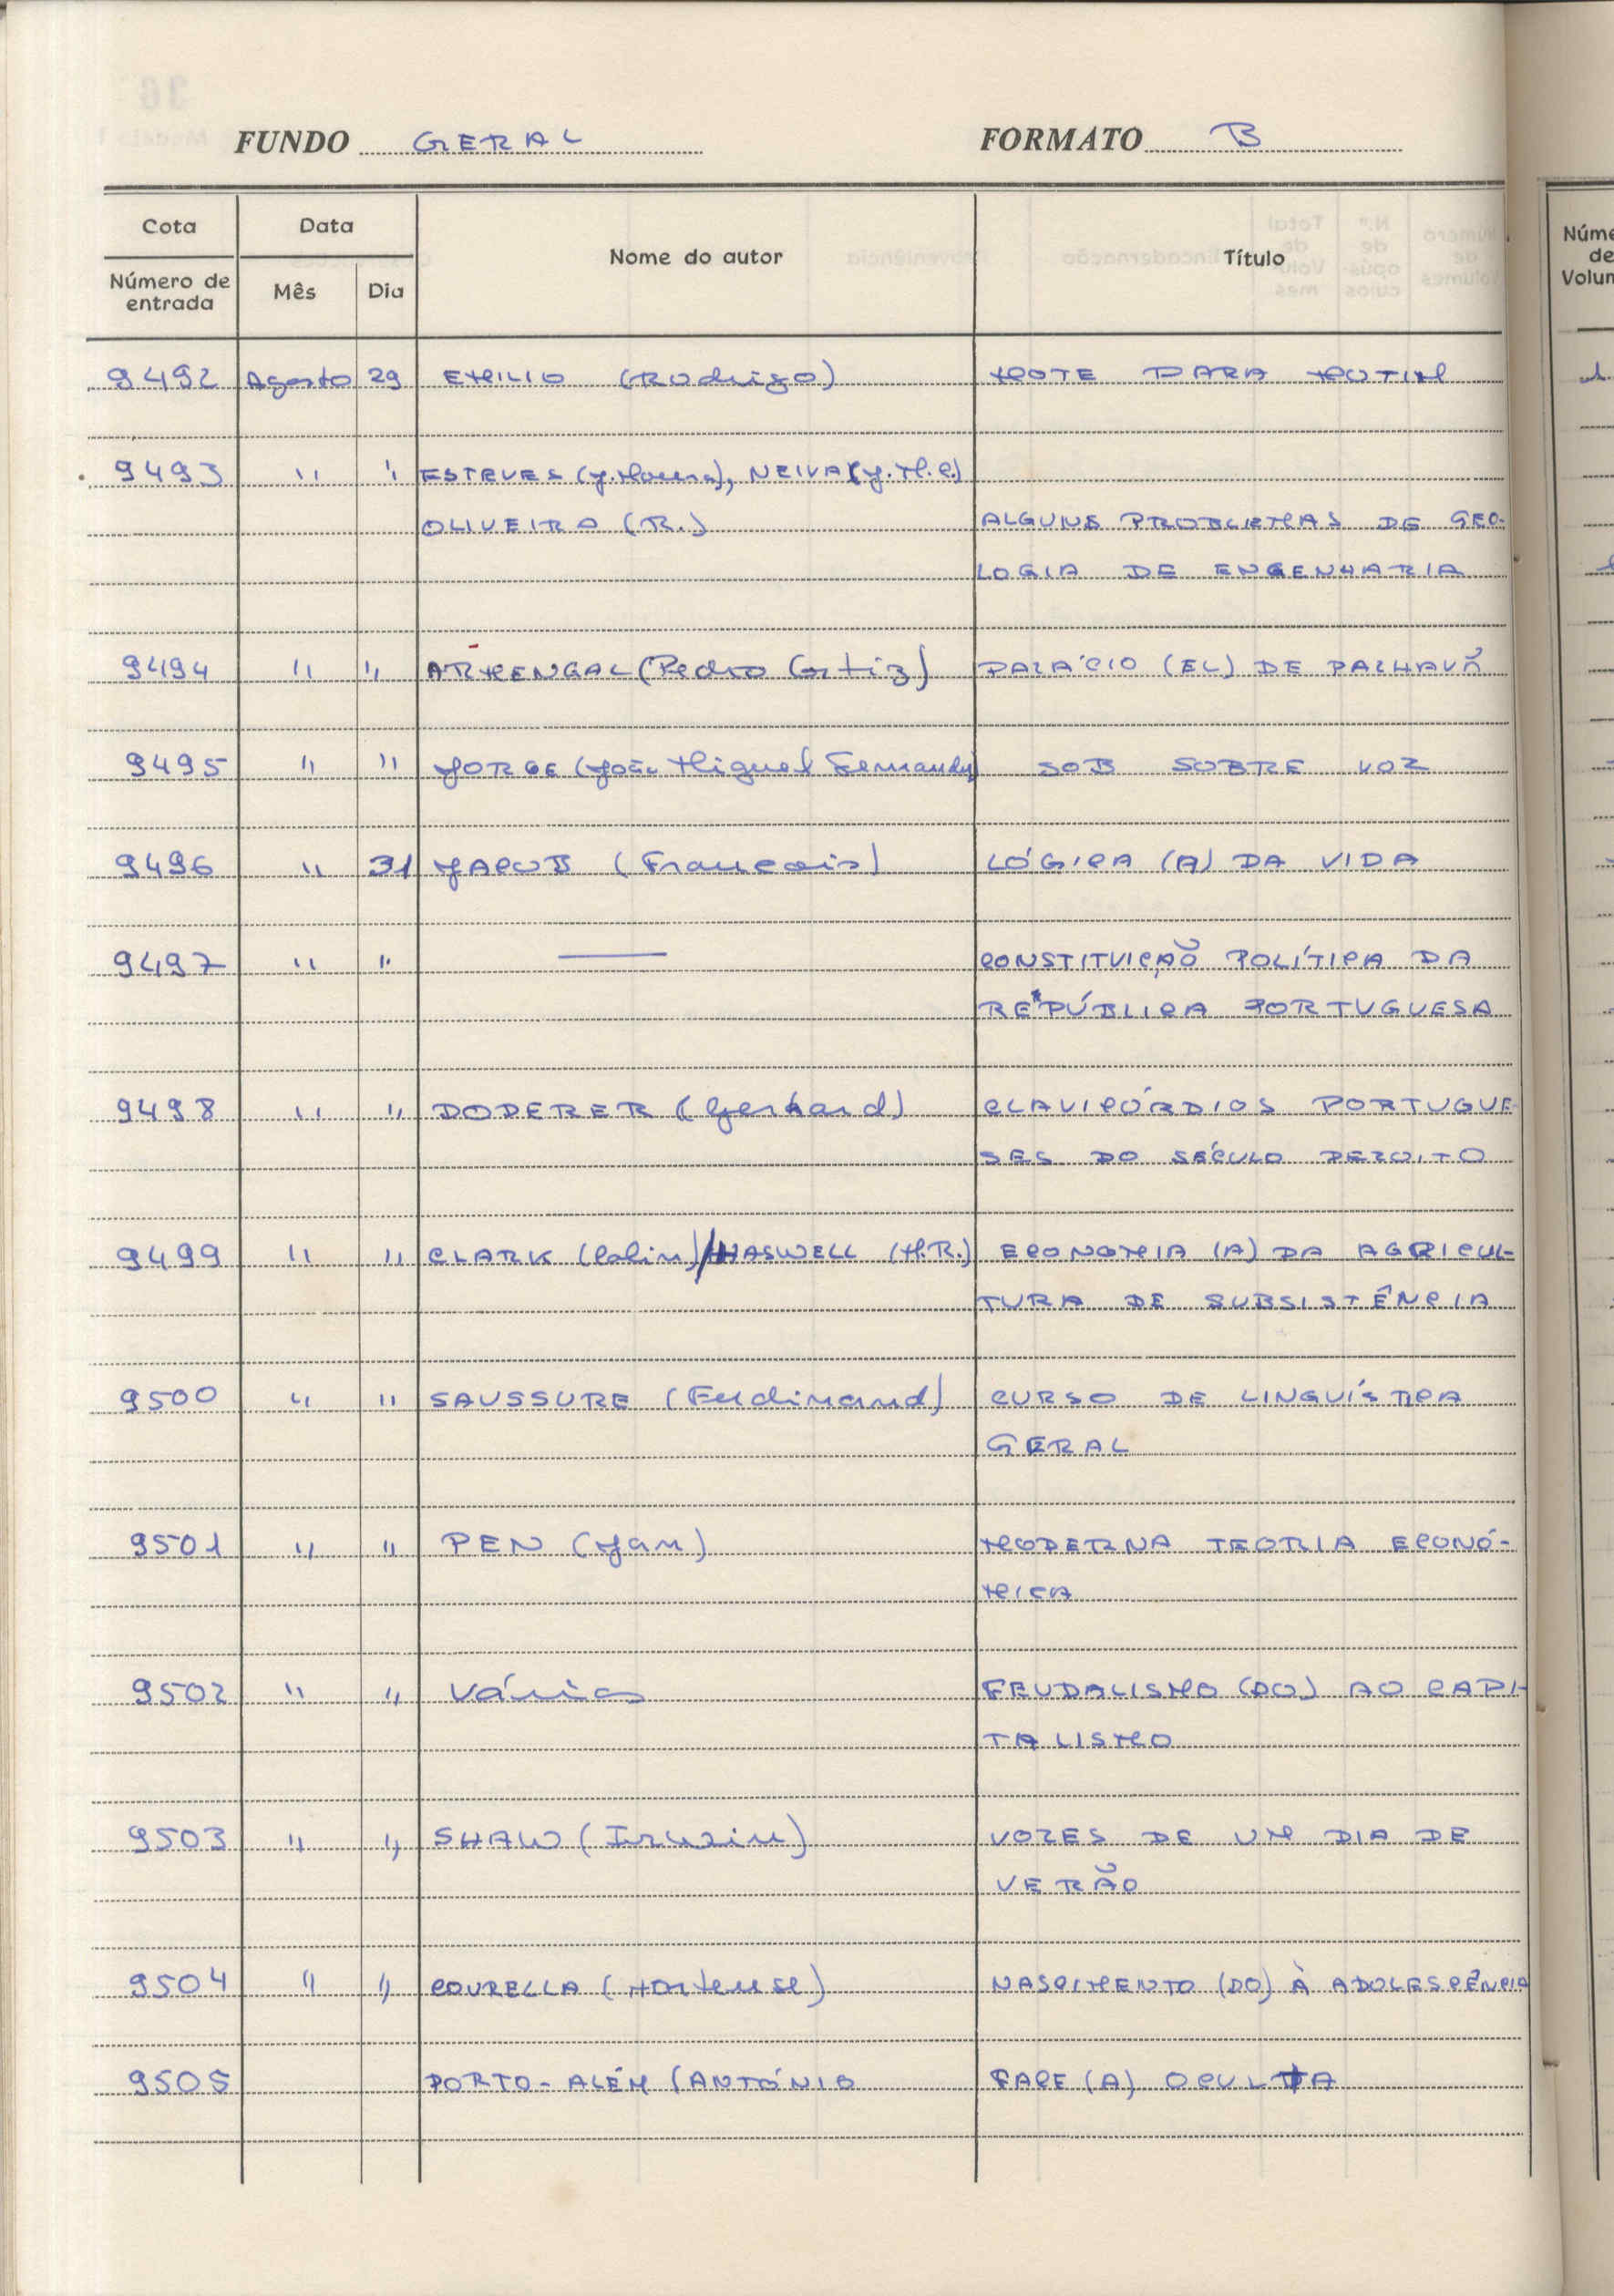 FUNDO GERAL FORMATO B
Cota Data Nome do autor Título
Número de entrada Mês Dia
9492 Agosto 29 EMILIO (Rodrigo) MOTE PARA MOTIM
9493 " " ESTEVES (J. Moura), NEIVA (J.M.C.)
OLIVEIRA (R.) ALGUNS PROBLEMAS DE GEO-
LOGIA DE ENGENHARIA
9494 " " ARMENGAL (Pedro Ortiz) PALÁCIO (EL) DE PALHAVÃ
9495 " " JORGE (João Miguel Fernandes) SOB SOBRE VOZ
9496 " 31 JACOB (Francois) LÓGICA (A) DA VIDA
9497 " " — CONSTITUIÇÃO POLÍTICA DA
REPÚBLICA PORTUGUESA
9498 " " DODERER (Gerhard) CLAVICÓRDIOS PORTUGUE-
SES DO SÉCULO DEZOITO
9499 " " CLARK (Colin)/HASWELL (M.R.) ECONOMIA (A) DA AGRICUL-
TURA DE SUBSISTÊNCIA
9500 " " SAUSSURE (Ferdinand) CURSO DE LINGUÍSTICA
GERAL
9501 " " PEN (Jan) MODERNA TEORIA ECONÓ-
MICA
9502 " " Vários FEUDALISMO (DO) AO CAPI-
TALISMO
9503 " " SHAW (Irwin) VOZES DE UM DIA DE
VERÃO
9504 " " COURELLA (Hortense) NASCIMENTO (DO) À ADOLESCÊNCIA
9505 PORTO-ALÉM (ANTÓNIO FACE (A) OCULTA
Núme
de
Volum